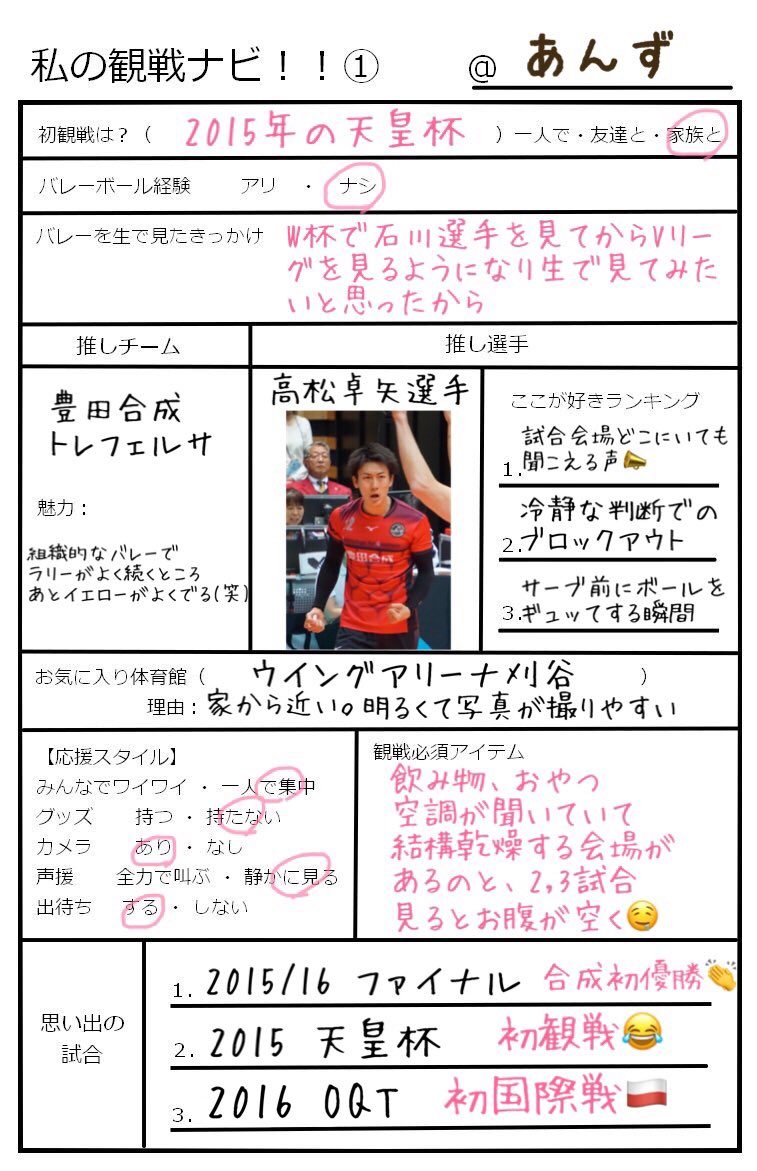 私の観戦ナビ！！① @ あんず
初観戦は？（ 2015年の天皇杯 ）一人で・友達と・家族と
バレーボール経験 アリ ・ ナシ
バレーを生で見たきっかけ W杯で石川選手を見てからVリー
グを見るようになり生で見てみた
いと思ったから
推しチーム 推し選手
豊田合成
トレフェルサ
魅力：
組織的なバレーで
ラリーがよく続くところ
あとイエローがよくでる(笑)
高松卓矢選手
豊田合成
ここが好きランキング
1. 試合会場どこにいても
聞こえる声📣
2. 冷静な判断での
ブロックアウト
3. サーブ前にボールを
ギュッてする瞬間
お気に入り体育館（ ウイングアリーナ刈谷 ）
理由：家から近い。明るくて写真が撮りやすい
【応援スタイル】
みんなでワイワイ ・ 一人で集中
グッズ 持つ ・ 持たない
カメラ あり ・ なし
声援 全力で叫ぶ ・ 静かに見る
出待ち する ・ しない
観戦必須アイテム
飲み物、おやつ
空調が聞いていて
結構乾燥する会場が
あるのと、2,3試合
見るとお腹が空く🤤
思い出の
試合
1. 2015/16 ファイナル 合成初優勝👏
2. 2015 天皇杯 初観戦😂
3. 2016 OQT 初国際戦🇵🇱